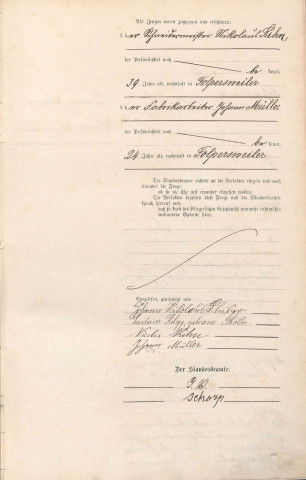 Als Zeugen waren zugezogen und erschienen:
3. der Schneidermeister Nikolaus Kuhn,
der Persönlichkeit nach
be kannt,
39 Jahre alt, wohnhaft in Folpersweiler
4. der Fabrikarbeiter Johann Müller
der Persönlichkeit nach
be kannt,
24 Jahre alt, wohnhaft in Folpersweiler
Der Standesbeamte richtete an die Verlobten einzeln und nach
einander die Frage:
ob sie die Ehe mit einander eingehen wollen.
Die Verlobten bejahten diese Frage und der Standesbeamte
sprach hierauf aus,
daß sie kraft des Bürgerlichen Gesetzbuchs nunmehr rechtmäßig
verbundene Eheleute seien.
Vorgelesen, genehmigt und
Johann Nikolaus
geborene
Kuhn
Johann Müller
Der Standesbeamte.
J. V.
Schorp